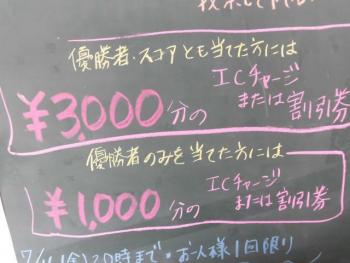 優勝者・スコアとも当てた方には
¥3,000分の ICチャージ
または割引券
優勝者のみを当てた方には
¥1,000分の ICチャージ
または割引券
時まで・お1人様1回限り